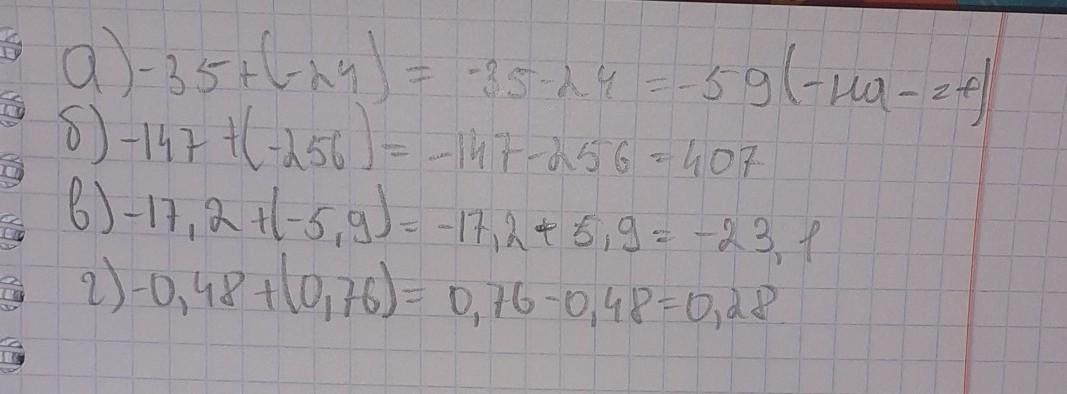 а) -35+(-24) = -35-24 = -59
б) -147+(-256) = -147-256 = 407
в) -17,2+(-5,9) = -17,2+5,9 = -23,1
г) -0,48+(0,76) = 0,76-0,48=0,28